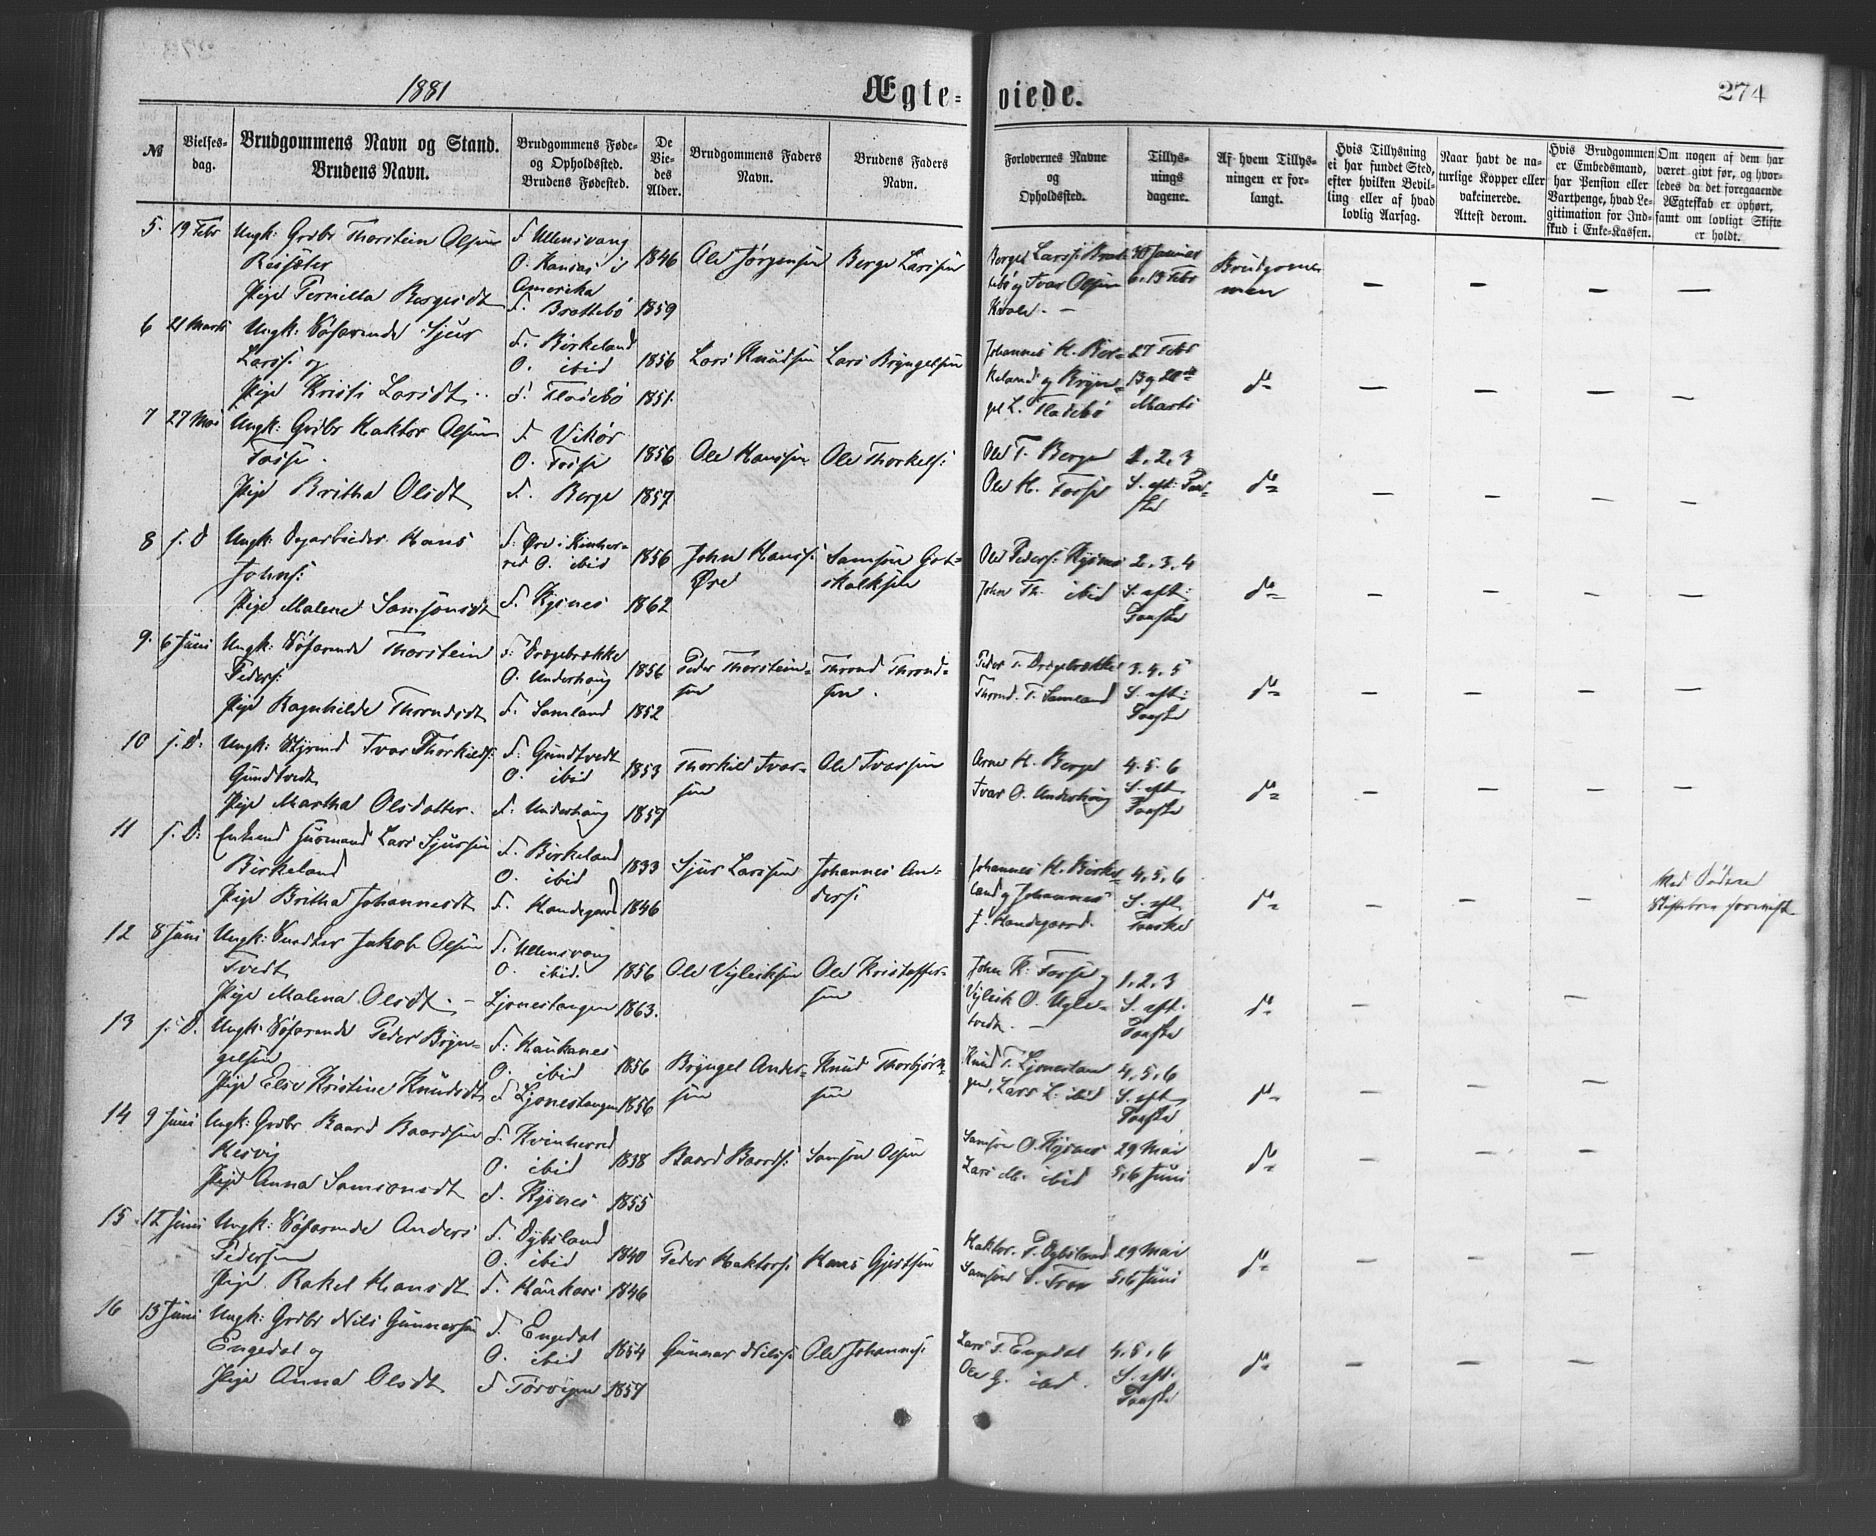 1881
Ægte-
viede.
274
№
Vielses-
dag.
Brudgommens Navn og Stand.
Brudens Navn.
Brudgommens Føde-
og Opholdssted.
Brudens Fødested.
De
Vie-
des
Alder.
Brudgommens Faders
Navn.
Brudens Faders
Navn.
Forlovernes Navne
og
Opholdssted.
Tillys-
nings
dagene.
Af hvem Tillys-
ningen er for-
langt.
Hvis Tillysning
ei har fundet Sted,
efter hvilken Bevil-
ling eller af hvad
lovlig Aarsag.
Naar havt de na-
turlige Kopper eller
vakcinerede.
Attest derom.
Hvis Brudgommen
er Embedsmand,
har Pension eller
Vartpenge, hvad Le-
gitimation for Ind-
skud i Enke-Kassen.
Om nogen af dem har
været givt før, og hvor-
ledes da det foregaaende
Ægteskab er ophørt,
samt om lovligt Skifte
er holdt.
5. 19 Febr Ungk: Grdbr Thorstein Olsen
Reisæter
Pige Pernilla Bergesdt
F. Ullensvang
O. Kansas i
Amerika
F. Brattebø
1846
1859
Ole Jørgensen
Berge Larssen
Berge Larss:
og Ivar Olsen
30 Januar
6. 13 Febr
Brudgom-
men
— — — —
6 21 Marts Ungk: Søfarende Sjur
Larss: og
Pige Kristi Larsdt.
F. Birkeland
O. ibid
F. Fladebø
1856
1851
Lars Knudsen
Lars Bryngelsen
Johannes H. Bir-
keland og Bryn-
gel L. Fladebø
27 Febr
13 og 20de
Marts
do
— — — —
7 27 Mai Ungk: Grdbr Haktor Olsen
Fosse
Pige Britha Olsdt
F. Vikør
O. Fosse
F. Berge
1856
1857
Ole Hanssen
Ole Thorkels:
Ole T. Berge
Ole H. Fosse
1, 2, 3
S. eft: Paa-
ske
do
— — — —
8 s. D Ungk: Dagarbeider Hans
Johns:
Pige Malene Samsonsdt
F. Øre i Kvinher-
red O. ibid
F. Rysnes
1856
1862
John Hanss:
Øre
Samson Got-
skalksen
Ole Peders: Rysnes
John Th. ibid
2, 3, 4
S. eft:
Paaske
do
— — — —
9. 6 Juni Ungk: Søfarende Thorstein
Peders:
Pige Ragnhilde Throndsdt
F. Drægebrække
O. Underhaug
F. Samland
1856
1852
Peder Thorstein-
sen
Thrond Thrond-
sen.
Peder T. Drægebrække
Thrond. T. Samland
3, 4, 5
S. eft:
Paaske
do
— — — —
10 s. D. Ungk: Styrmd Ivar Thorkilds:
Gundtvedt
Pige Martha Olsdatter.
F. Gundtvedt
O. ibid
F. Underhaug
1853
1857
Thorkild Ivar-
sen
Ole Ivarsen
Arne H. Berge
Ivar O. Underhaug
4. 5. 6
S. eft.
Paaske
do
— — — —
11 s. D: Enkemd Husmand Lars Sjursen
Birkeland
Pige Britha Johannesdt
F. Birkeland
O. ibid
F. Handegaard
1833
1846
Sjur Larssen
Johannes An-
derss:
Johannes H. Birke-
land og Johannes
J. Handegaard.
4, 5, 6
S. eft.
Paaske
do
— — —
12 8 Juni Ungk: Snedker Jakob Olsen
Tvedt
Pige Malena Olsdt. —
F. Ullensvang
O. ibid.
Ljonestangen
1856
1863.
Ole Vigleiksen
Ole Kristoffer-
sen
John K. Fosse og
Vigleik O. Ugle-
tvedt. —
1, 2, 3
S. eft:
Paaske
do
— — —
13 s. D. Ungk: Søfarende Peder Bryn-
gelsen
Pige Else Kristine Knudsdt
F: Haukanes
O. ibid
F Ljonestangen
1856
1856
Bryngel Anders-
sen
Knud Thorbjørn-
sen
Knud T. Ljonestan
gen, Lars L. ibid
4, 5, 6
S. eft.
Paaske
do
— — —
14 9 Juni Ungk: Grdbr. Baard Baardsen
Pige Anna Samsonsdt
F. Kvinherred
O. ibid
F. Rysnes
1838
1855
Baard Baards:
Samson Olsen
Samson O. Rysnes
Lars M. ibid
29 Mai
5, 6 Juni
do
— — —
15 12 Juni Ungk: Søfarende Anders
Pedersen
Pige Rakel Hansdt
F. Dybsland
O. ibid
F. Haukaas
1840
1846
Peder Haktors:
Hans Gjertsen
Haktor. P. Dybsland
29 Mai
5, 6 Juni
do
— — —
16 13 Juni Ungk: Grdbr Nils Gunnarsen
Engedal og
Pige Anna Olsdt
F. Engedal
O. ibid
F Torvigen
1854
1857
Gunnar Nilss:
Ole Johannes:
Lars T. Engedal
Ole G. ibd.
4, 5, 6
S. eft.
Paaske
do
— — —